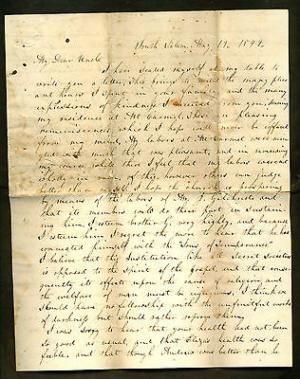 South Salem, Aug 19, 1844.
My Dear Uncle
I have seated myself at my table to
write you a letter. This brings to mind the many pleas
ant hours I spent in your family, and the many
expressions of kindness I received from you, during
my residence at Mt Carmel. These are pleasing
reminiscences, which I hope will never be effaced
from my mind. My labors at Mt Carmel were min
gled with much that was pleasant, and in reviewing
my course while there I feel that my labors were not
of this however others can judge
better than myself. I hope the church is prospering
by means of the labors of Mr. Gilchrist and
that its members will do their part in sustain
ing him. I esteem brother G. very highly, and because
I esteem him I regret the more to hear that he has
connected himself with the "Sons of Temperance"
I believe that this Institution like all Secret Societies
is opposed to the Spirit of the gospel, and that conse-
quently its effects upon the cause of religion and
the welfare of man must be injurious. I think we
should have no fellowship with the unfruitful works
of darkness but should rather reprove them.
I was sorry to hear that your health had not been
so good as usual, and that Eliza's health was so
feeble and that though Andrew was better than he